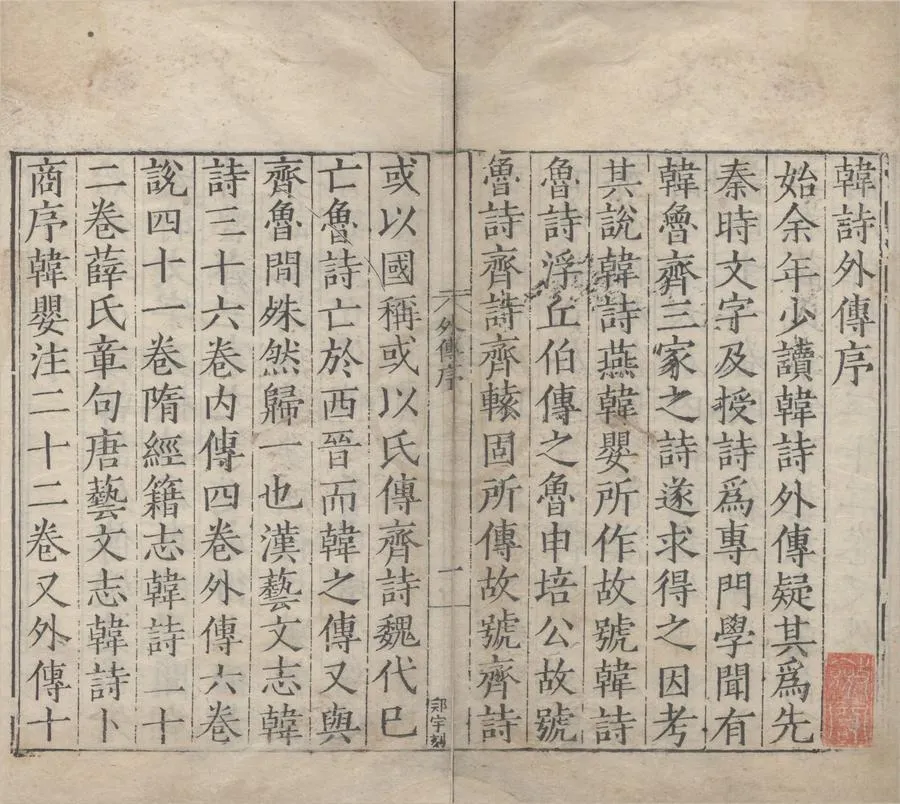 韓詩外傳序
始余年少讀韓詩外傳疑其爲先
秦時文字及授詩爲專門學聞有
韓魯齊三家之詩遂求得之因考
其說韓詩燕韓嬰所作故號韓詩
魯詩浮丘伯傳之魯申培公故號
魯詩齊詩齊轅固所傳故號齊詩
外傳序
一
或以國稱或以氏傳齊詩魏代已
亡魯詩亡於西晉而韓之傳又與
齊魯間殊然歸一也漢藝文志韓
詩三十六卷內傳四卷外傳六卷
說四十一卷隋經籍志韓詩二十
二卷薛氏章句唐藝文志韓詩卜
商序韓嬰注二十二卷又外傳十